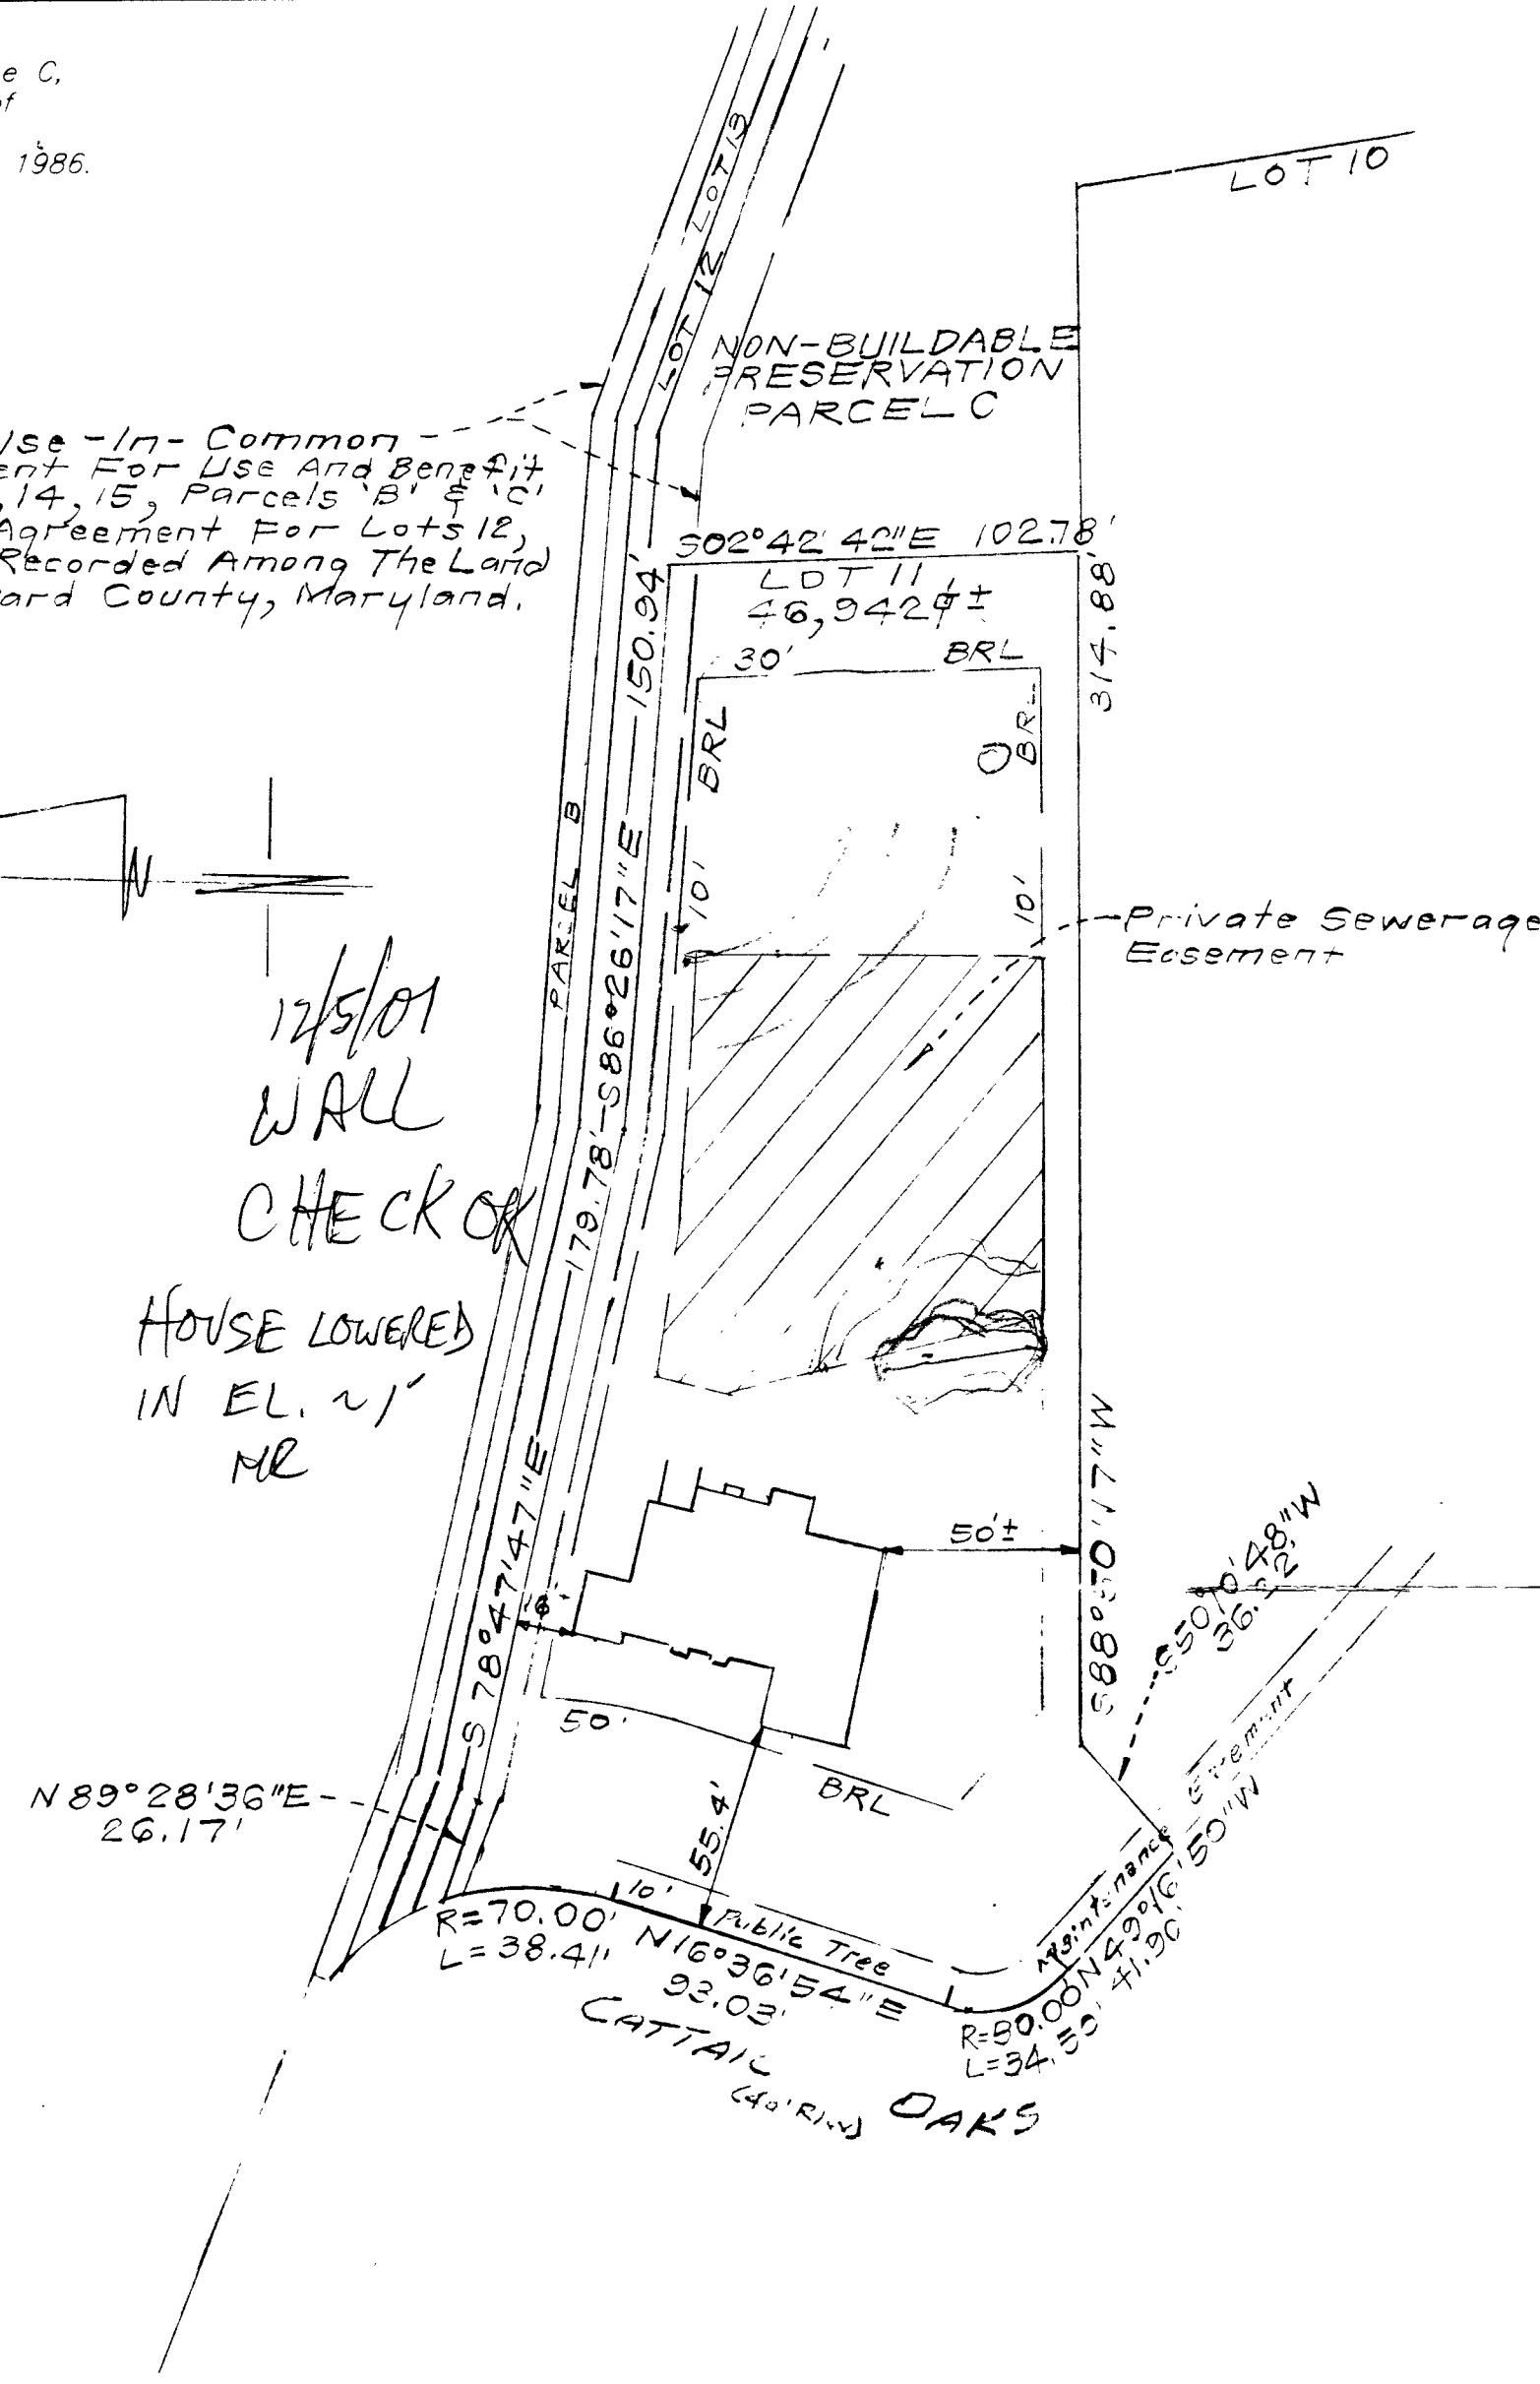 e C,
of
1986.
LOT 10
LOT 13
LOT 12
NON-BUILDABLE
PRESERVATION
PARCEL C
Use-In-Common
ent For Use And Benefit
,14,15, Parcels 'B' & 'C'
Agreement For Lots 12,
Recorded Among The Land
ard County, Maryland.
S02°42'42"E 102.78'
LOT 11
46,942 ±
150.94'
314.88'
30' BRL
BRL
BRL
10'
10'
PARCEL B
S86°26'17"E
N
Private Sewerage
Easement
12/5/01
WALL
CHECK OK
HOUSE LOWERED
IN EL. ~1'
MR
179.78'
S 78°47'47"E
50'±
S88°50'17"W
48"W
50'
BRL
55.4'
N89°28'36"E
26.17'
10' Public Tree
Maintenance
R=70.00'
L=38.41'
N16°36'54"E
93.03'
N49°16'50"W
41.90'
R=80.00'
L=34.50'
CATTAIL
(40' R/W)
OAKS